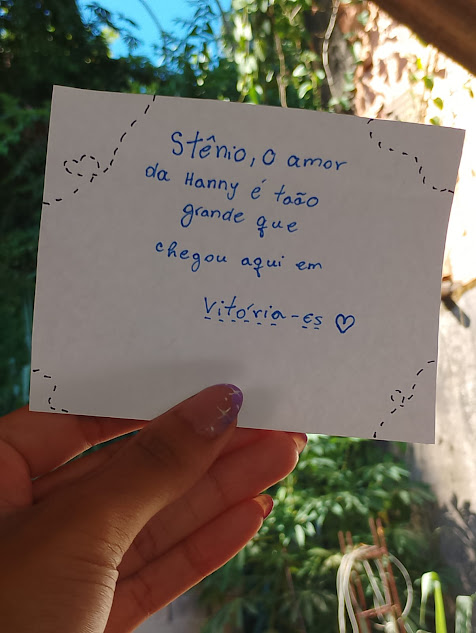 Stênio, o amor
da Hanny é taão
grande que
chegou aqui em
Vitória-es ♡